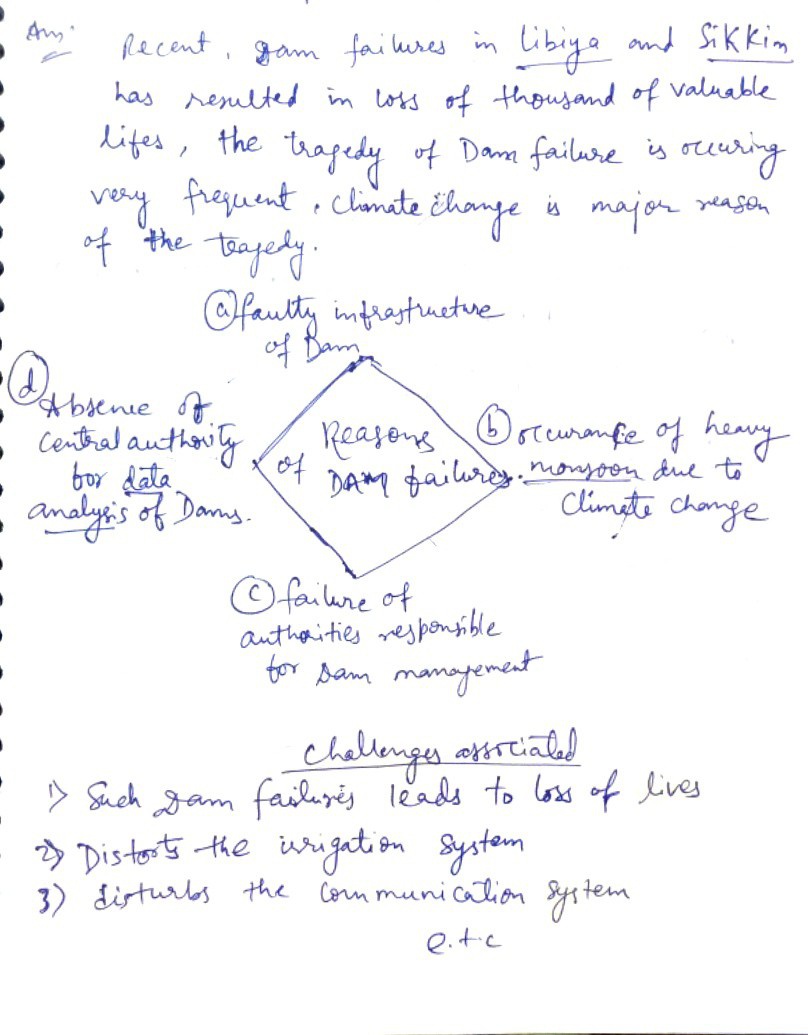 Ans:
Recent, dam failures in Libiya and Sikkim
has resulted in loss of thousand of valuable
lifes, the tragedy of Dam failure is occuring
very frequent. Climate change is major reason
of the tragedy.
(a) faulty infrastructure
of Dam
(d)
Absence of
central authority
for data
analysis of Dams.
Reasons
of DAM failures.
(b) occurance of heavy
monsoon due to
Climate change
(c) failure of
authorities responsible
for Dam management
Challenges associated
1) Such dam failures leads to loss of lives
2) Distorts the irrigation system
3) disturbs the communication system
e.t.c